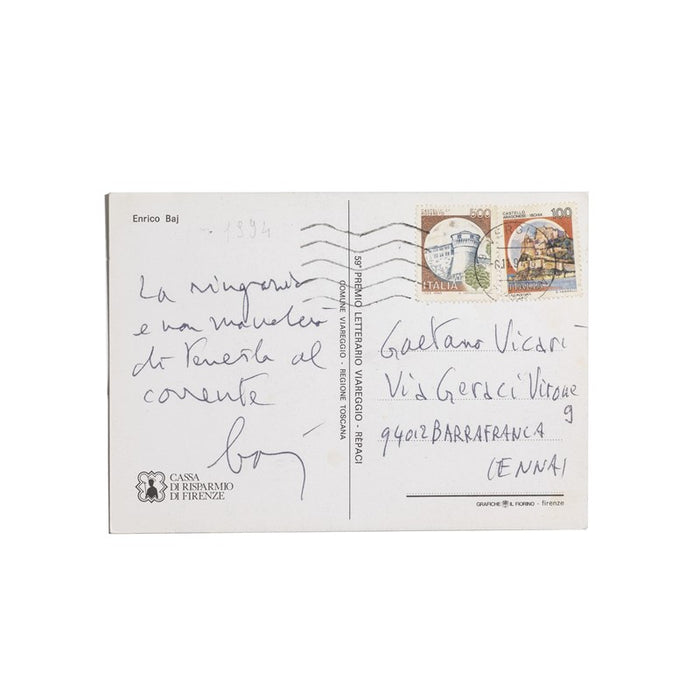 Enrico Baj
1994
La ringrazio
e non mancherò
di tenerla al
corrente
baj
CASSA
DI RISPARMIO
DI FIRENZE
59° PREMIO LETTERARIO VIAREGGIO - RÈPACI
COMUNE VIAREGGIO - REGIONE TOSCANA
500
ITALIA
CASTELLO
ARAGONESE - ISCHIA
100
Gaetano Vicari
Via Geraci Virone
9
94012 BARRAFRANCA
(ENNA)
GRAFICHE IL FIORINO - firenze